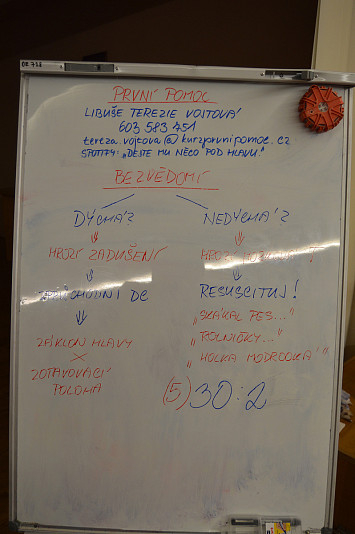 PRVNÍ POMOC
LIBUŠE TEREZIE VOJTOVÁ
603 583 451
tereza.vojtova@kurzprvnipomoc.cz
SPOTIFY: „DEJTE MU NĚCO POD HLAVU."
BEZVĚDOMÍ
DÝCHÁ?
HROZÍ ZADUŠENÍ
DC
ZÁKLON HLAVY
×
ZOTAVOVACÍ
POLOHA
NEDÝCHÁ?
HROZÍ
RESUSCITUJ!
„SKÁKAL PES..."
„ROLNIČKY..."
„HOLKA MODROOKÁ"
(5) 30:2